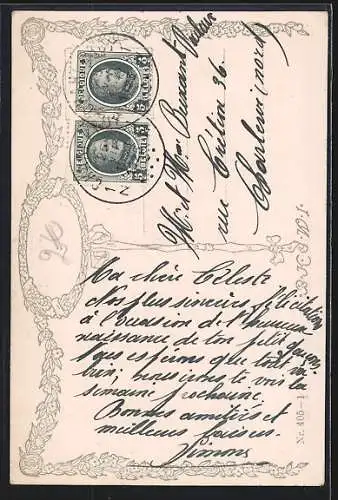 M. et Mme Bauvant
rue Crétin 36
(nord)
Ma chère Céleste
Nos plus sincères félicitations
à l'occasion de l'heureuse
naissance de ton petit garçon,
nous espérons que tout va
bien; nous irons te voir la
semaine prochaine.
Bonnes amitiés et
meilleurs baisers.
Simonne
Nr. 405-1
BELGIE
15 15
BELGIQUE
15 15
26